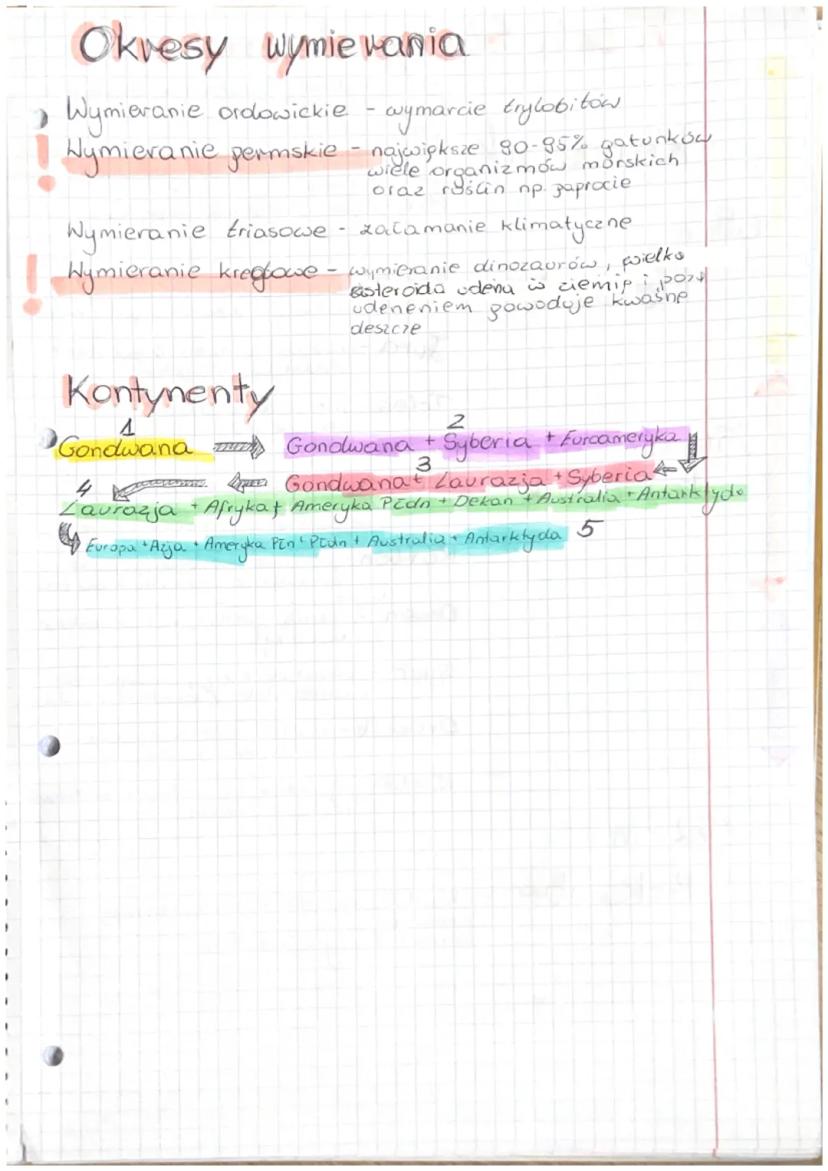 Okresy wymierania
Wymieranie ordowickie - wymarcie trylobitów
! Wymieranie permskie - największe 90-95% gatunków
wiele organizmów morskich
oraz roślin np. paprocie
Wymieranie triasowe - załamanie klimatyczne
! Wymieranie kredowe - wymieranie dinozaurów, wielka
asteroida udeża w ziemię i
udeżeniem powoduje kwaśne
deszcze
Kontynenty
1 2
Gondwana Gondwana + Syberia + Euroameryka
3
Gondwana + Laurazja + Syberia
4
Laurazja + Afryka + Ameryka Płdn + Dekan + Australia + Antarktyda
Europa + Azja + Ameryka Płn + Płdn + Australia + Antarktyda 5